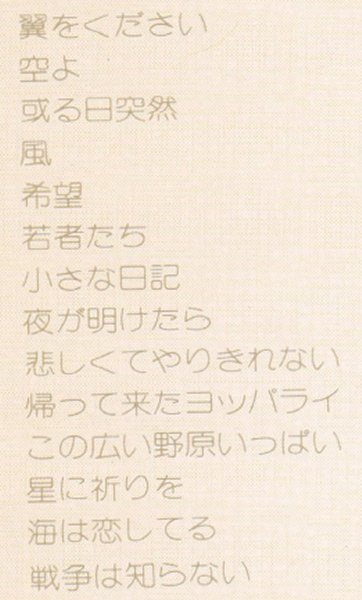 翼をください
空よ
或る日突然
風
希望
若者たち
小さな日記
夜が明けたら
悲しくてやりきれない
帰って来たヨッパライ
この広い野原いっぱい
星に祈りを
海は恋してる
戦争は知らない